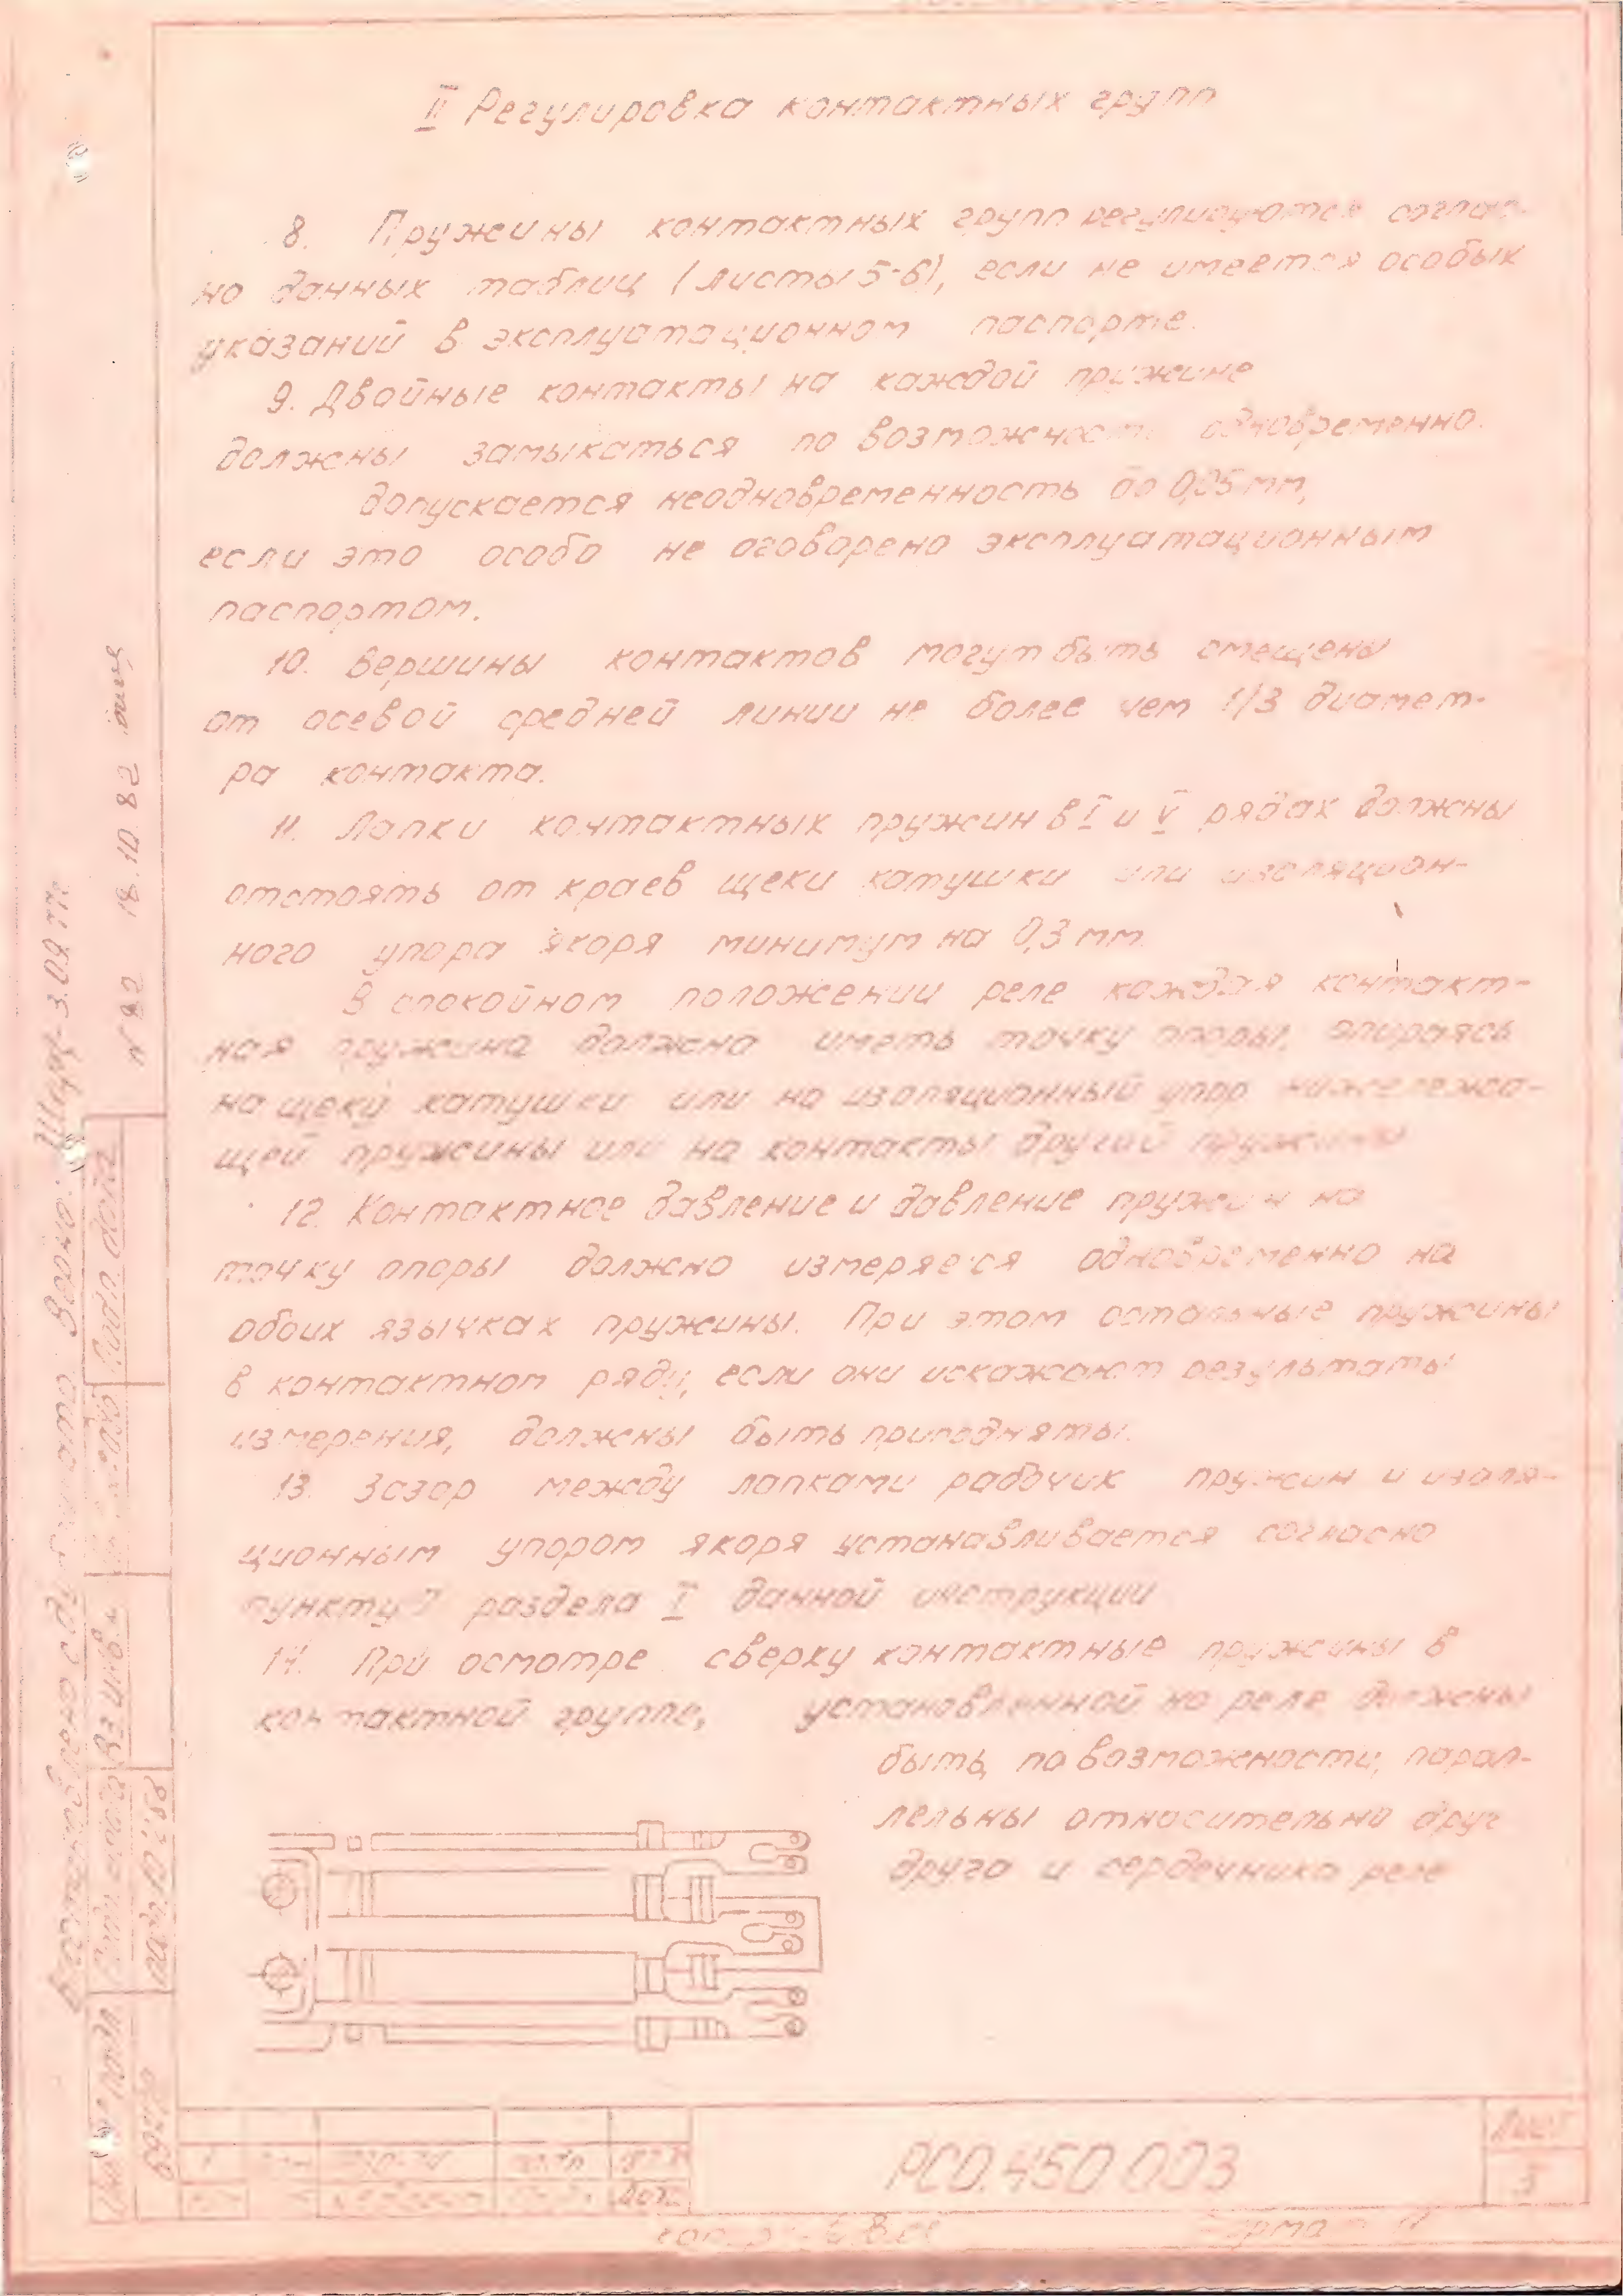 II Регулировка контактных групп
8. Пружины контактных групп регулируются соглас-
но данных таблиц (листы 5-6), если не имеется особых
указаний в эксплуатационном паспорте.
9. Двойные контакты на каждой пружине
должны замыкаться по возможности одновременно.
допускается неодновременность до 0,05 мм,
если это особо не оговорено эксплуатационным
паспортом.
10. Вершины контактов могут быть смещены
от осевой средней линии не более чем 1/3 диамет-
ра контакта.
11. Лапки контактных пружин в I и V рядах должны
отстоять от краев щеки катушки или изоляцион-
ного упора якоря минимум на 0,3 мм
В спокойном положении реле каждая контакт-
ная пружина должна иметь точку опоры, опираясь
на щеку катушки или на изоляционный упор нижележа-
щей пружины или на контакты другой пружины
12. Контактное давление и давление пружин на
точку опоры должно измеряется одновременно на
обоих язычках пружины. При этом остальные пружины
в контактном ряду, если они искажают результаты
измерения, должны быть приподняты.
13. Зазор между лапками рабочих пружин и изоля-
ционным упором якоря устанавливается согласно
пункту 7 раздела I данной инструкции
14. При осмотре сверху контактные пружины в
контактной группе, установленной на реле должны
быть, по возможности, парал-
лельны относительно друг
друга и сердечника реле
РС0.450.003
Лист
3
Дата
N 82 18.10.82
Подп. и дата
Взам. инв. №